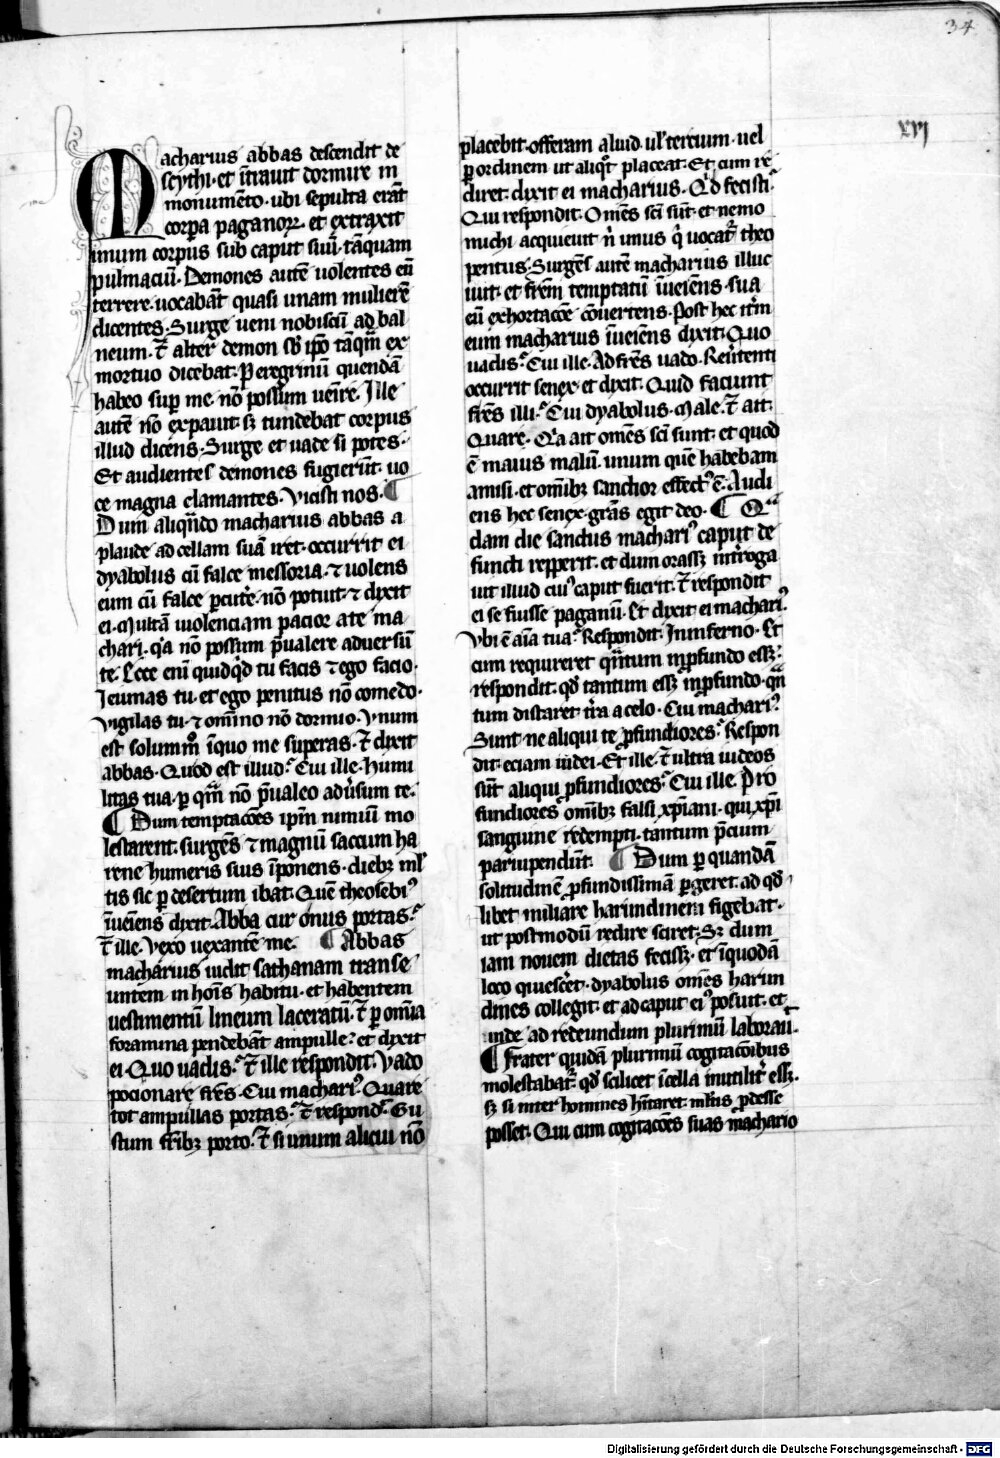 34
xvi
Macharius abbas descendit de
scythi · et ītrauit dormire in
monumēto · ubi sepulta erāt
corpa paganoꝝ · et extraxit
unum corpus sub caput suū · tāquam
pulmaciū · Demones autē uolentes eū
terrere · uocabāt quasi unam mulierē
dicentes · Surge ueni nobiscū ad bal
neum · Et alter demon sb̄ ip̄o tāqm̄ ex
mortuo dicebat · Peregrinū quendā
habeo sup me · nō possum uenire · Ille
autē nō expauit · sꝫ tundebat corpus
illud dicens · Surge et uade si potes ·
Et audientes demones fugierūt · uo
ce magna clamantes · Vicisti nos · ¶
Dum aliqn̄do macharius abbas a
plaude ad cellam suā iret · occurrit ei
dyabolus cū falce messoria · ⁊ uolens
eum cū falce ꝑcutẽ · nō potuit · ⁊ dixit
ei · Multā uiolenciam pacior a te ma
chari · q̇a nō possum p̄ualere aduersū
te · Ecce eni quidq̇d tu facis ⁊ ego facio ·
Ieiunas tu · et ego penitus nō comedo ·
Vigilas tu · ⁊ omīno nō dormio · Vnum
est solummō īquo me superas · Et dixit
abbas · Quod est illud · Cui ille · Humi
litas tua · ꝑ qm̄ nō p̄ualeo adu̇sum te ·
¶ Dum temptacōes ip̄m nimiū mo
lestarent · surgēs ⁊ magnū saccum ha
rene humeris suis īponens · diebꝫ ml̄
tis sic ꝑ desertum ibat · Quē theosebiꝰ
īueniēns dixit · Abba cur onus portas ·
Et ille · Vexo uexantē me · ¶ Abbas
macharius uidit sathanam transe
untem in hoīs habitu · et habentem
uestimentū lineum laceratū · Et ꝑ om̄ia
foramina pendebāt ampulle · et dixit
ei · Quo uadis · Et ille respondit · Vado
pocionare fr̄es · Cui machariꝰ · Quare
tot ampullas portas · Et respond · Gu
stum fr̄ibꝫ porto · Et si unum alicui nō
placebit · offeram aliud · ul̕ tercium · uel
ꝑ ordinem ut aliq̇t placeat · Et cum re
diret · dixit ei macharius · Q̇d fecisti ·
Qui respondit · Om̄es sc̄i sūt · et nemo
michi acquieuit n̄ unus q̇ uocat̄ theo
pentus · Surgēs autē macharius illuc
iuit · et fr̄em temptatū īueiēns · sua
eū exhortacōe cōuertens · Post hec itm̄
eum macharius īueiēns dixit · Quo
uadis · Cui ille · Ad fr̄es uado · Reu̇tenti
occurrit senex · et dixit · Quid faciunt
fr̄es illi · Cui dyabolus · Male · Et ait ·
Quare · Q̇a ait om̄es sc̄i sunt · et quod
ē maius malū · unum quē habebam
amisi · et om̄ibꝫ sanctior effectꝰ ē · Audi
ens hec senex · grās egit deo · ¶ Qua
dam die sanctus machariꝰ caput de
functi repperit · et dum orassꝫ int̓roga
uit illud cuiꝰ caput fuerit · Et respondit
ei se fuisse paganū · Et dixit ei machariꝰ ·
Vbi ē aīa tua · Respondit · In inferno · Et
cum requireret qn̄tum in ꝓfundo essꝫ ·
respondit · qd̄ tantum essꝫ in ꝓfundo · qn̄
tum distaret t̓ra a celo · Cui machariꝰ
Sunt ne aliqui te ꝓfundiores · Respon
dit · eciam iudei · Et ille · Et ultra iudeos
sūt aliqui ꝓfundiores · Cui ille · Pro
fundiores om̄ibꝫ falsi xp̄iani · qui xp̄i
sanguine redempti · tantum p̄cium
paruipendūt · ¶ Dum ꝑ quandā
solitudinē ꝓfundissimā ꝑgeret · ad qd̄
libet miliare harundinem figebat ·
ut postmodū redire sciret · Sꝫ dum
iam nouem dietas fecissꝫ · et īquodā
loco quiesc̄et · dyabolus om̄es harun
dines collegit · et ad caput eiꝰ posuit · et
inde ad redeundum plurimū laborau̇ ·
¶ Frater quidā plurimū cogitacōibus
molestabat̄ · qd̄ scilicet īcella inutilit̓ essꝫ ·
sꝫ si inter homines hītaret · ml̄tis ꝓdesse
posset · Qui cum cogitacōes suas machario
Digitalisierung gefördert durch die Deutsche Forschungsgemeinschaft - DFG